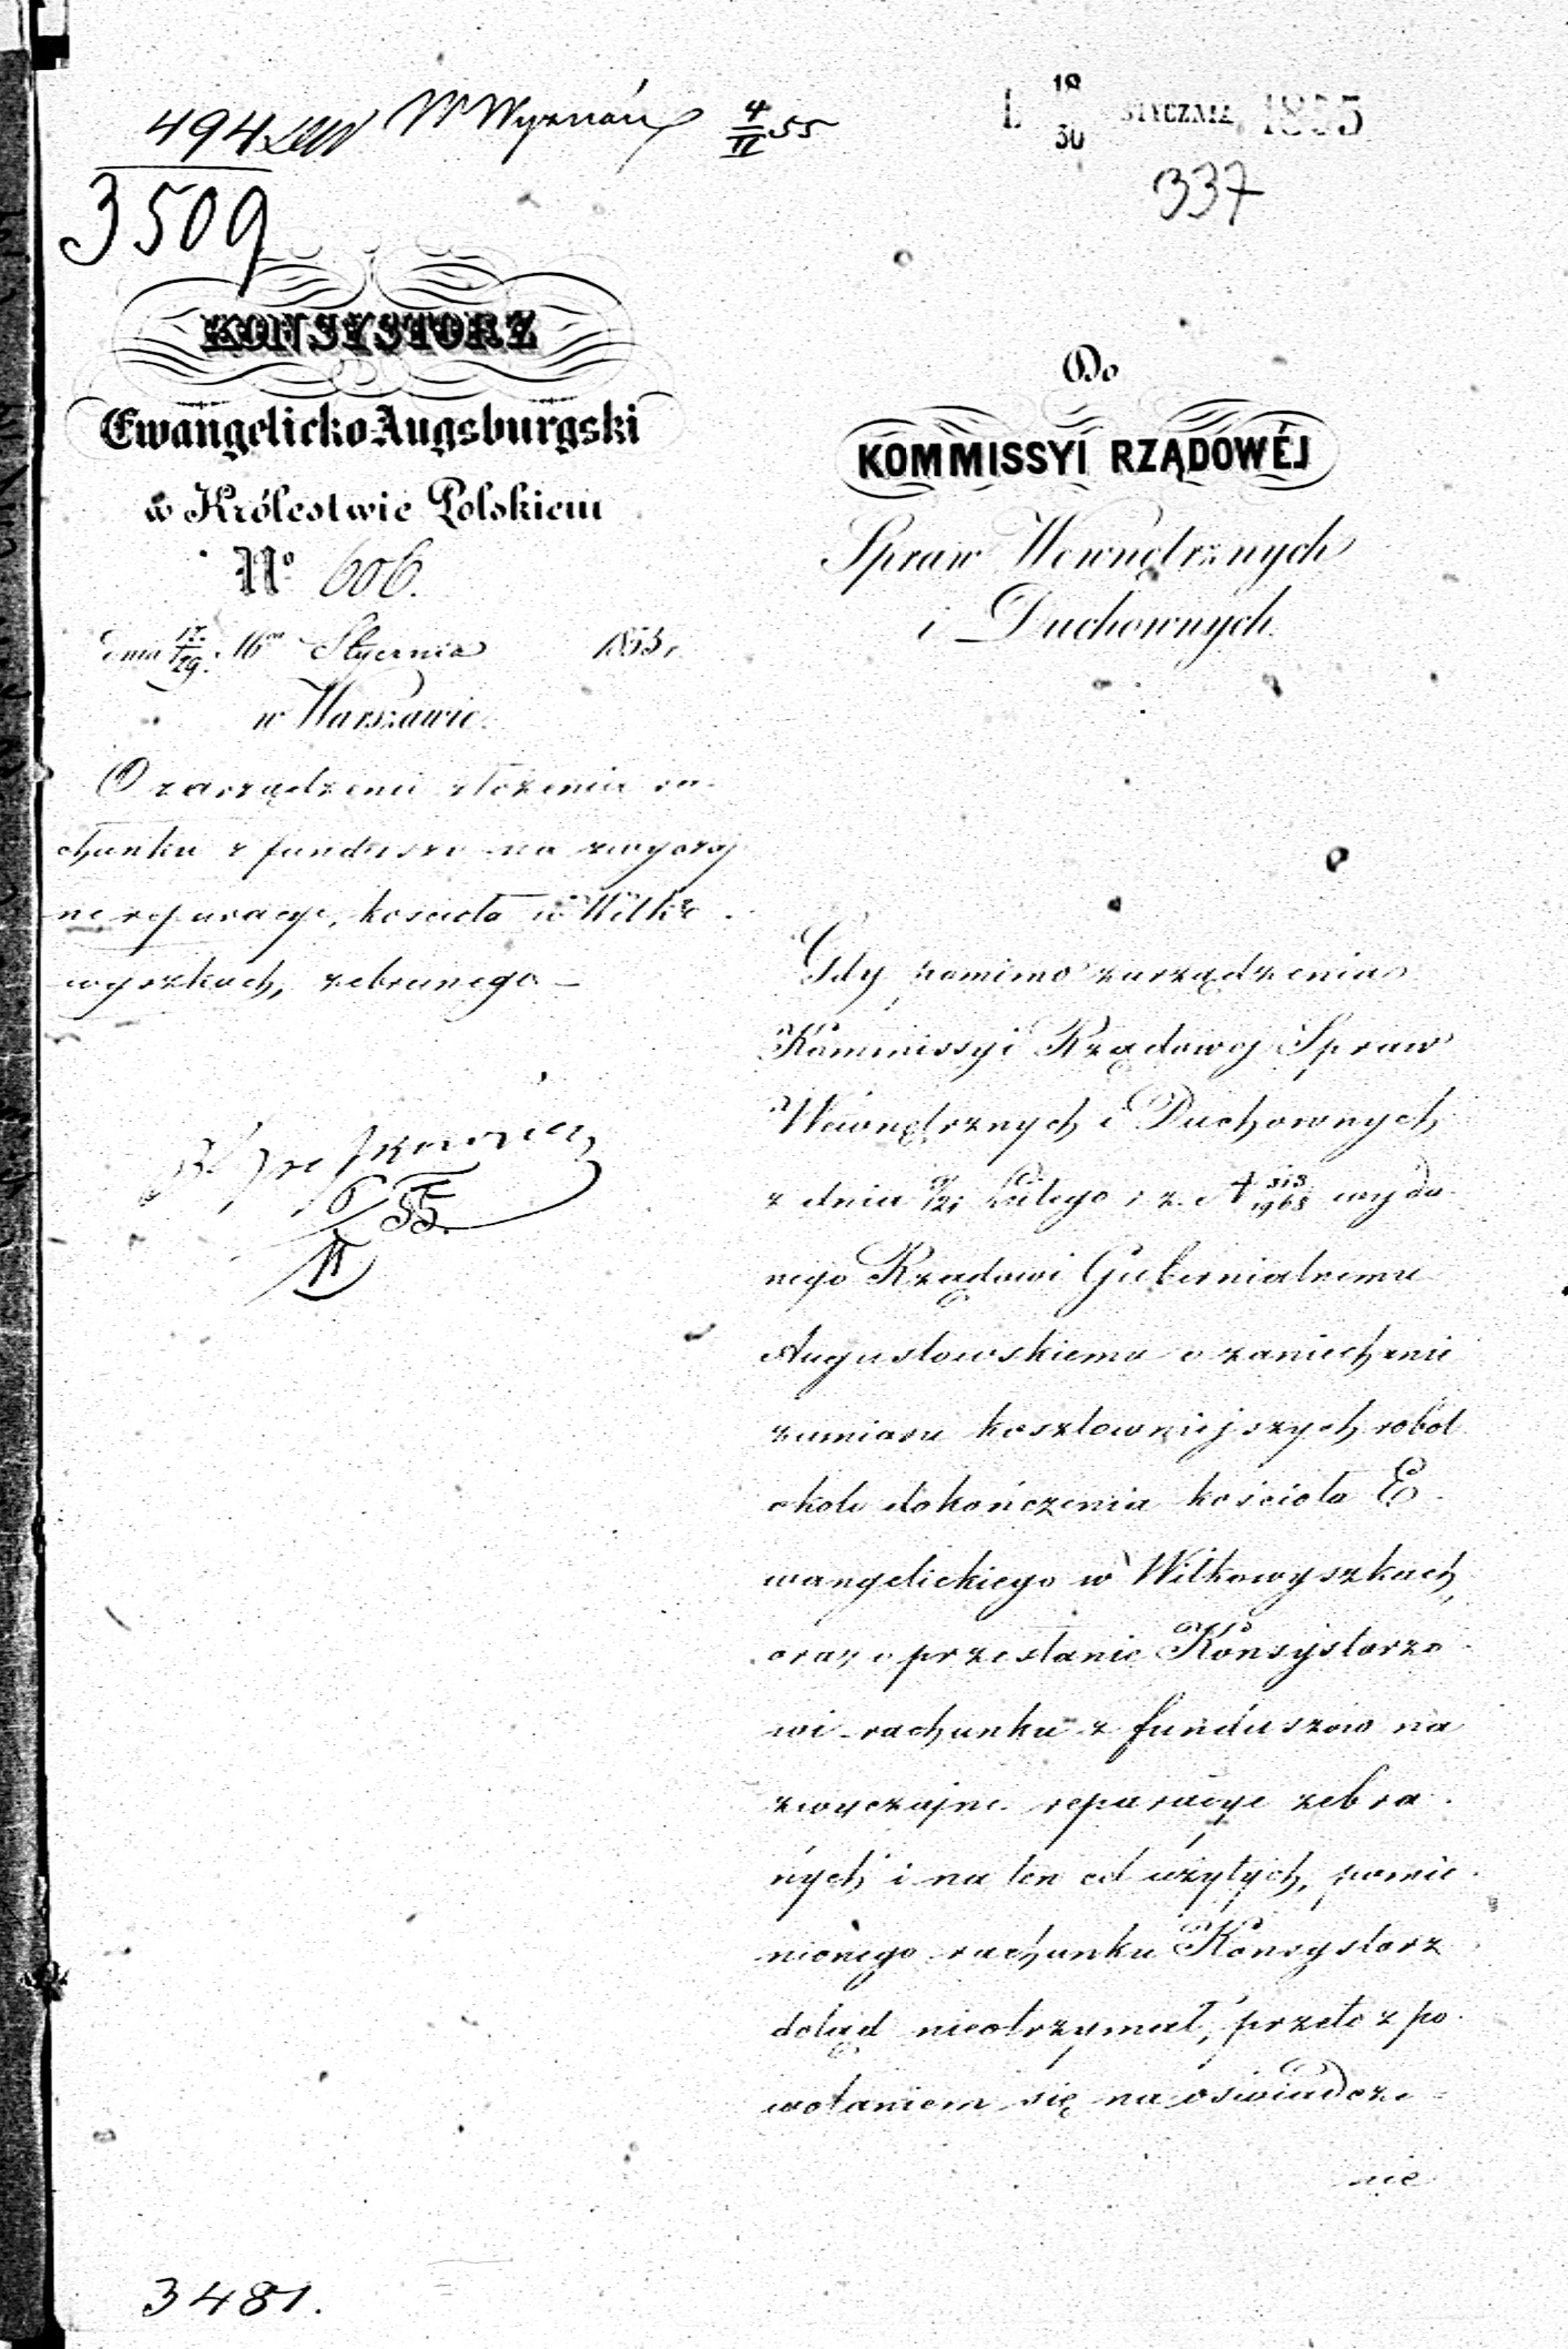 494 W Wyznań 4/II 55
3509
L 18/30 STYCZNIA 1855
337
KONSYSTORZ
Ewangelicko-Augsburgski
w Królestwie Polskiem
No 606.
dnia 17/29. Stycznia 1855 r.
w Warszawie.
O zarządzenie złożenia ra-
chunku z funduszu na zwyczaj
ne reparacye, kościoła w Wiłko-
wyszkach, zebranego
6/II 55.
Do
KOMMISSYI RZĄDOWÉJ
Spraw Wewnętrznych
i Duchownych.
Gdy pomimo zarządzenia
Kommissyi Rządowej Spraw
Wewnętrznych i Duchownych
z dnia 9/21 Lutego r. z. N 313/1965 wyda-
nego Rządowi Gubernialnemu
Augustowskiemu o zaniechanie
zamiaru kosztowniejszych robot
około dokończenia kościoła E-
wangelickiego w Wiłkowyszkach,
oraz o przesłanie Konsystorzo-
wi rachunku z funduszów na
zwyczajne reparacye zebra-
nych i na ten cel użytych, pomie-
nionego rachunku Konsystorz
dotąd nieotrzymał, przeto z po-
wołaniem się na oświadcze-
nie
3481.